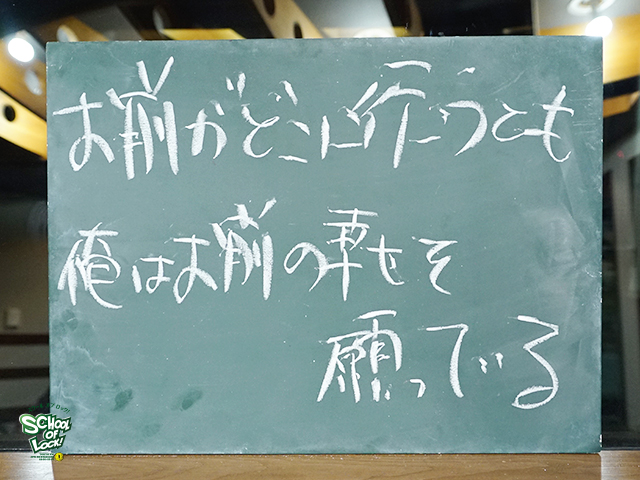 お前がどこに行こうとも
俺はお前の幸せを
願っている
SCHOOL
OF
LOCK!